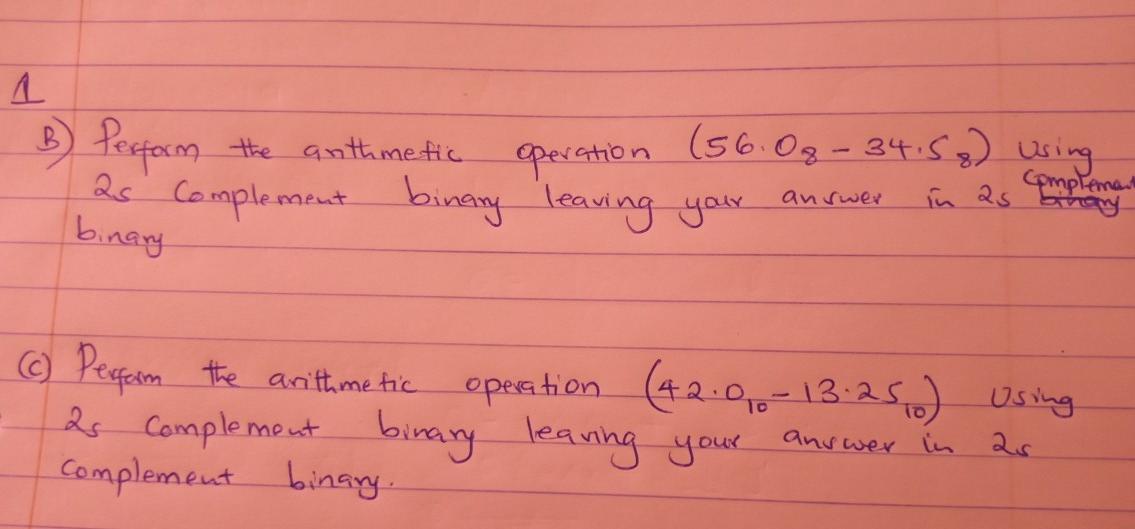 1
B) Perform the arithmetic operation (56.0₈ - 34.5₈) Using
2s Complement binary leaving your answer in 2s Complement
binary
(C) Perform the arithmetic operation (42.0₁₀ - 13.25₁₀) Using
2s Complement binary leaving your answer in 2s
Complement binary.